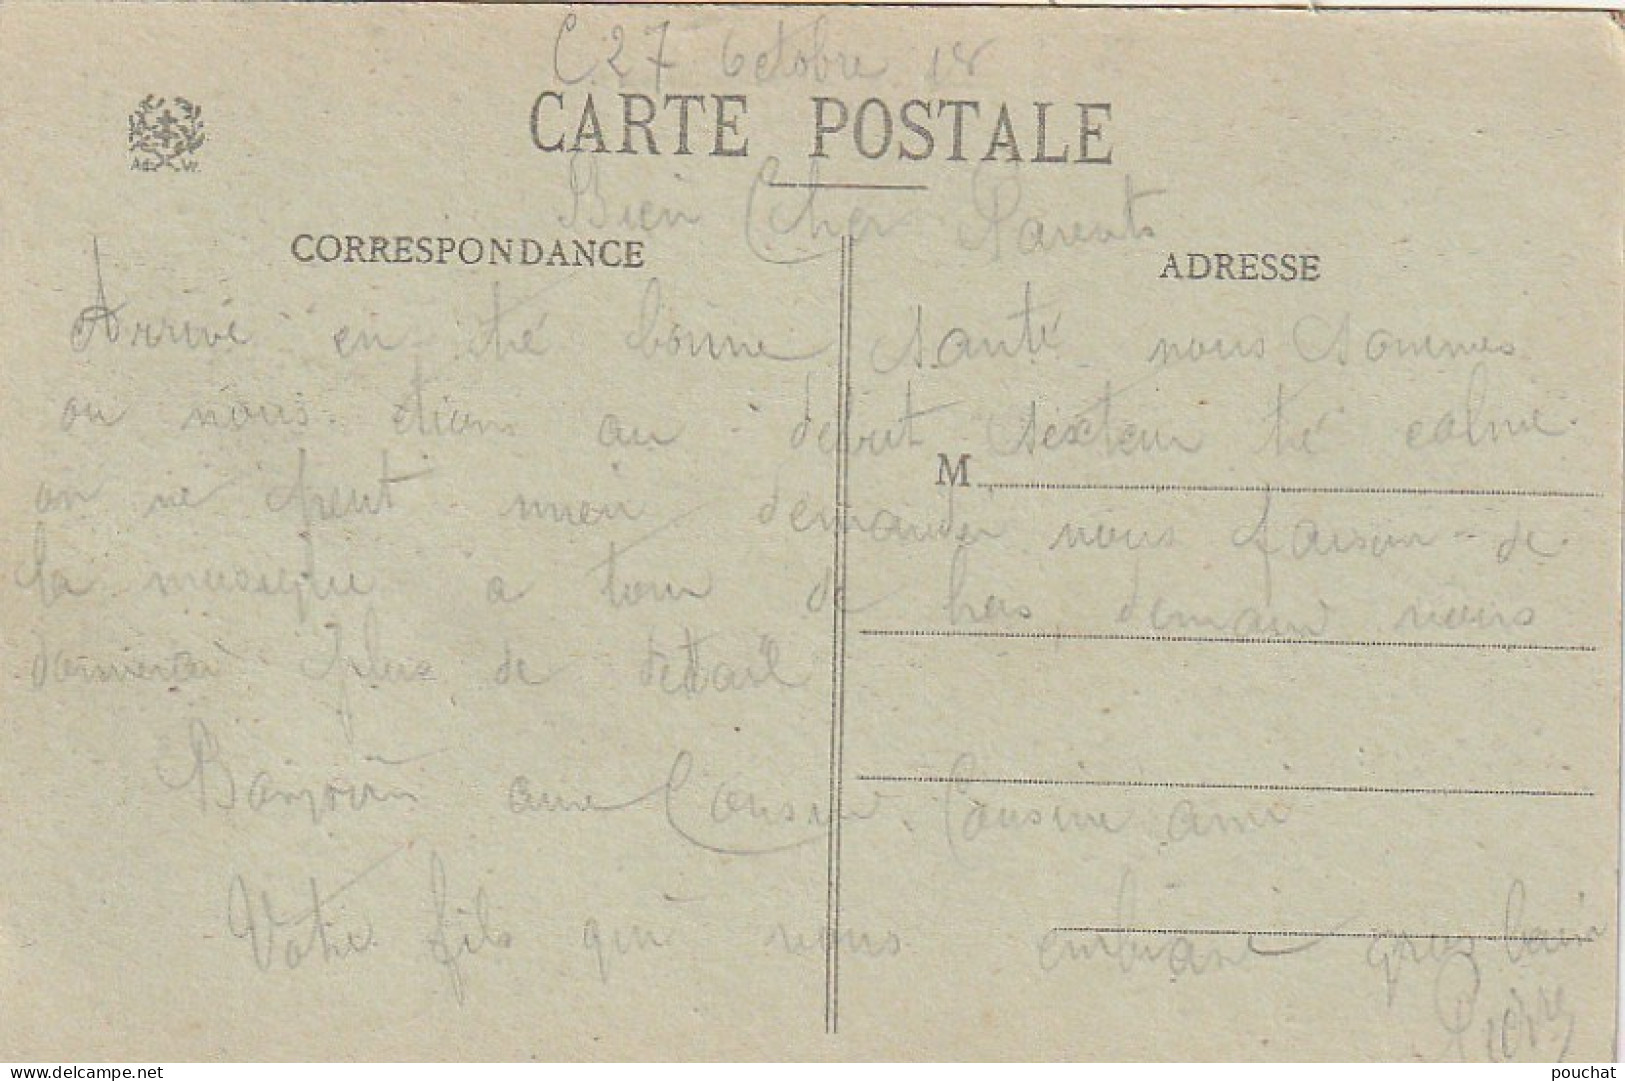 C. 27 Octobre 18
CARTE POSTALE
Ad. W.
Bien Cher Parents
CORRESPONDANCE
ADRESSE
Arrivé en tré bonne santé nous sommes
ou nous étions au debut secteur tré calme
on ne peut mieu demander nous faison de
M
la musique a tour de bras, demain nous
donnerai plus de dettail
Bonjour aux Cousin, Cousine ami
Votre fils qui vous embrasse gros bair
Pierre
pouchat